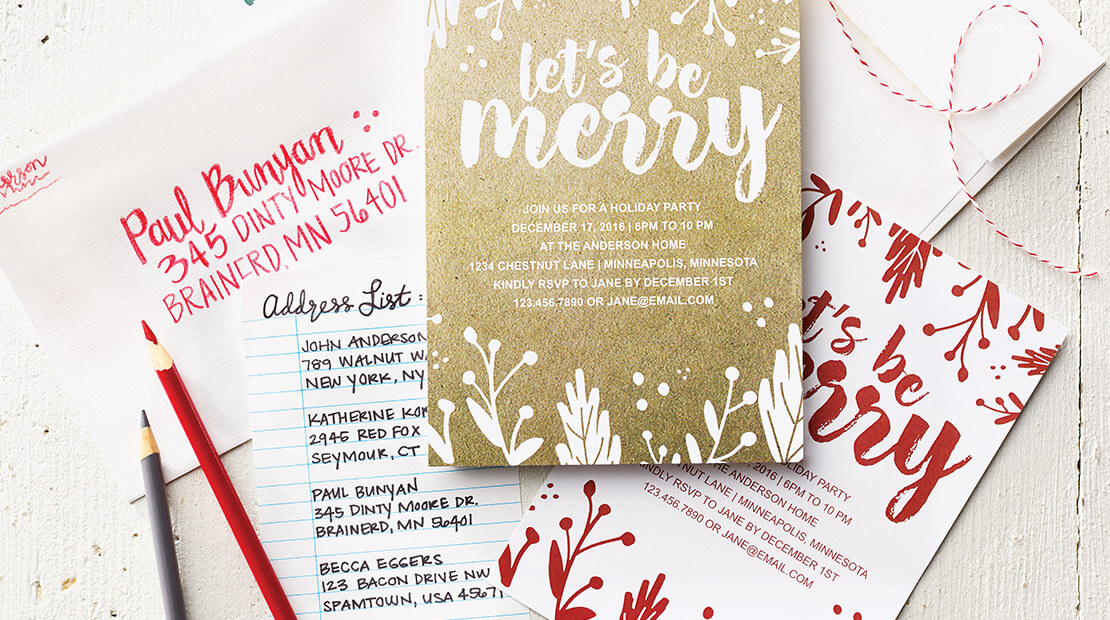 Paul Bunyan
345 DINTY MOORE DR.
BRAINERD, MN 56401
Address List:
JOHN ANDERSON
789 WALNUT
NEW YORK, NY
KATHERINE
2945 RED FOX
SEYMOUR, CT
PAUL BUNYAN
345 DINTY MOORE DR.
BRAINERD, MN 56401
BECCA EGGERS
123 BACON DRIVE NW
SPAMTOWN, USA 45671
let's be
merry
JOIN US FOR A HOLIDAY PARTY
DECEMBER 17, 2016 | 6PM TO 10 PM
AT THE ANDERSON HOME
1234 CHESTNUT LANE | MINNEAPOLIS, MINNESOTA
KINDLY RSVP TO JANE BY DECEMBER 1ST
123.456.7890 OR JANE@EMAIL.COM
be
HOLIDAY PARTY
2016 | 6PM TO 10 PM
THE ANDERSON HOME
LANE | MINNEAPOLIS, MINNESOTA
KINDLY RSVP TO JANE BY DECEMBER 1ST
123.456.7890 OR JANE@EMAIL.COM